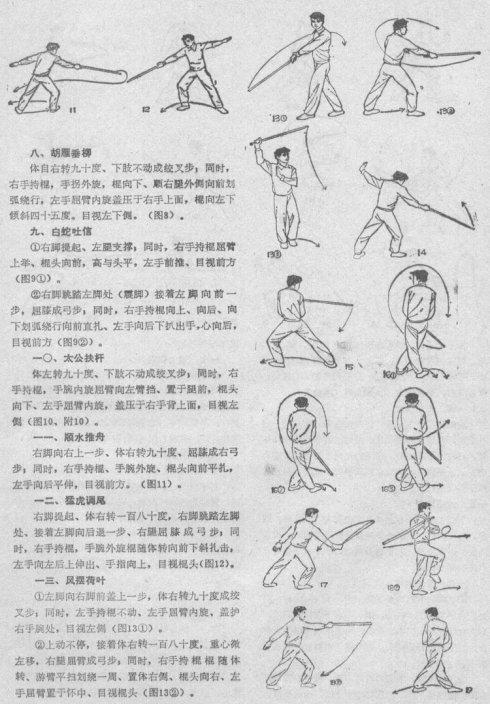 11
12
13①
13②
八、胡雁垂柳
体自右转九十度、下肢不动成绞叉步；同时，
右手持棍，手拐外旋，棍向下、顺右腿外侧向前划
弧绕行，左手屈臂内旋盖压于右手上面，棍向左下
倾斜四十五度。目视左下侧。（图8）。
九、白蛇吐信
①右脚提起、左腿支撑；同时，右手持棍屈臂
上举、棍头向前，高与头平，左手前推、目视前方
（图9①）。
②右脚跳踏左脚处（震脚）接着左脚向前一
步，屈膝成弓步；同时，右手持棍向上、向后、向
下划弧绕行向前直扎、左手向后下扒出手，心向后，
目视前方（图9②）。
一〇、太公扶杆
体左转九十度、下肢不动成绞叉步；同时，右
手持棍，手腕内旋屈臂向左臂挡、置于腿前，棍头
向下、左手屈臂内旋，盖压于右手背上面，目视左
侧（图10、附10）。
一一、顺水推舟
右脚向右上一步、体右转九十度、屈膝成右弓
步；同时，右手持棍、手腕外旋、棍头向前平扎，
左手向后平伸、目视前方。（图11）。
一二、猛虎调尾
右脚提起、体右转一百八十度，右脚跳踏左脚
处、接着左脚向后退一步、右腿屈膝成弓步；同
时，右手持棍，手腕外旋棍随体转向前下斜扎击，
左手向左后上伸出、手指向上，目视棍头（图12）。
一三、风摆荷叶
①左脚向右脚前盖上一步，体右转九十度成绞
叉步；同时，左手持棍不动、左手屈臂内旋，盖护
右手腕处，目视左侧（图13①）。
②上动不停，接着体右转一百八十度，重心微
左移，右腿屈臂成弓步；同时，右手持棍棍随体
转、游臂平扫划绕一周、置体右侧、棍头向右、左
手屈臂置于怀中、目视棍头（图13②）。
13③
14
15
16①
16②
17
18②
19